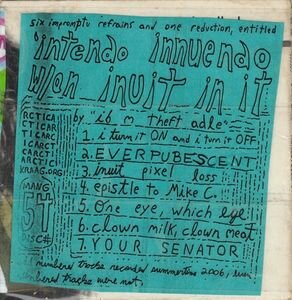 six impromptu refrains and one reduction, entitled
'intendo innuendo
w/on inuit in it
by "ib m theft adle"
RCTICA
CTICAR
TICARC
ICARCT
CARCTI
ARCTIC
KRAAG.ORG
MANG
5t
DISC#
1. i turn it ON and i turn it OFF
2. EVERPUBESCENT
3. inuit pixel loss
4. epistle to Mike C.
5. One eye, which eye
6. clown milk, clown meat
7. YOUR SENATOR
numbered tracks recorded summertime 2006, even
bered tracks were not.